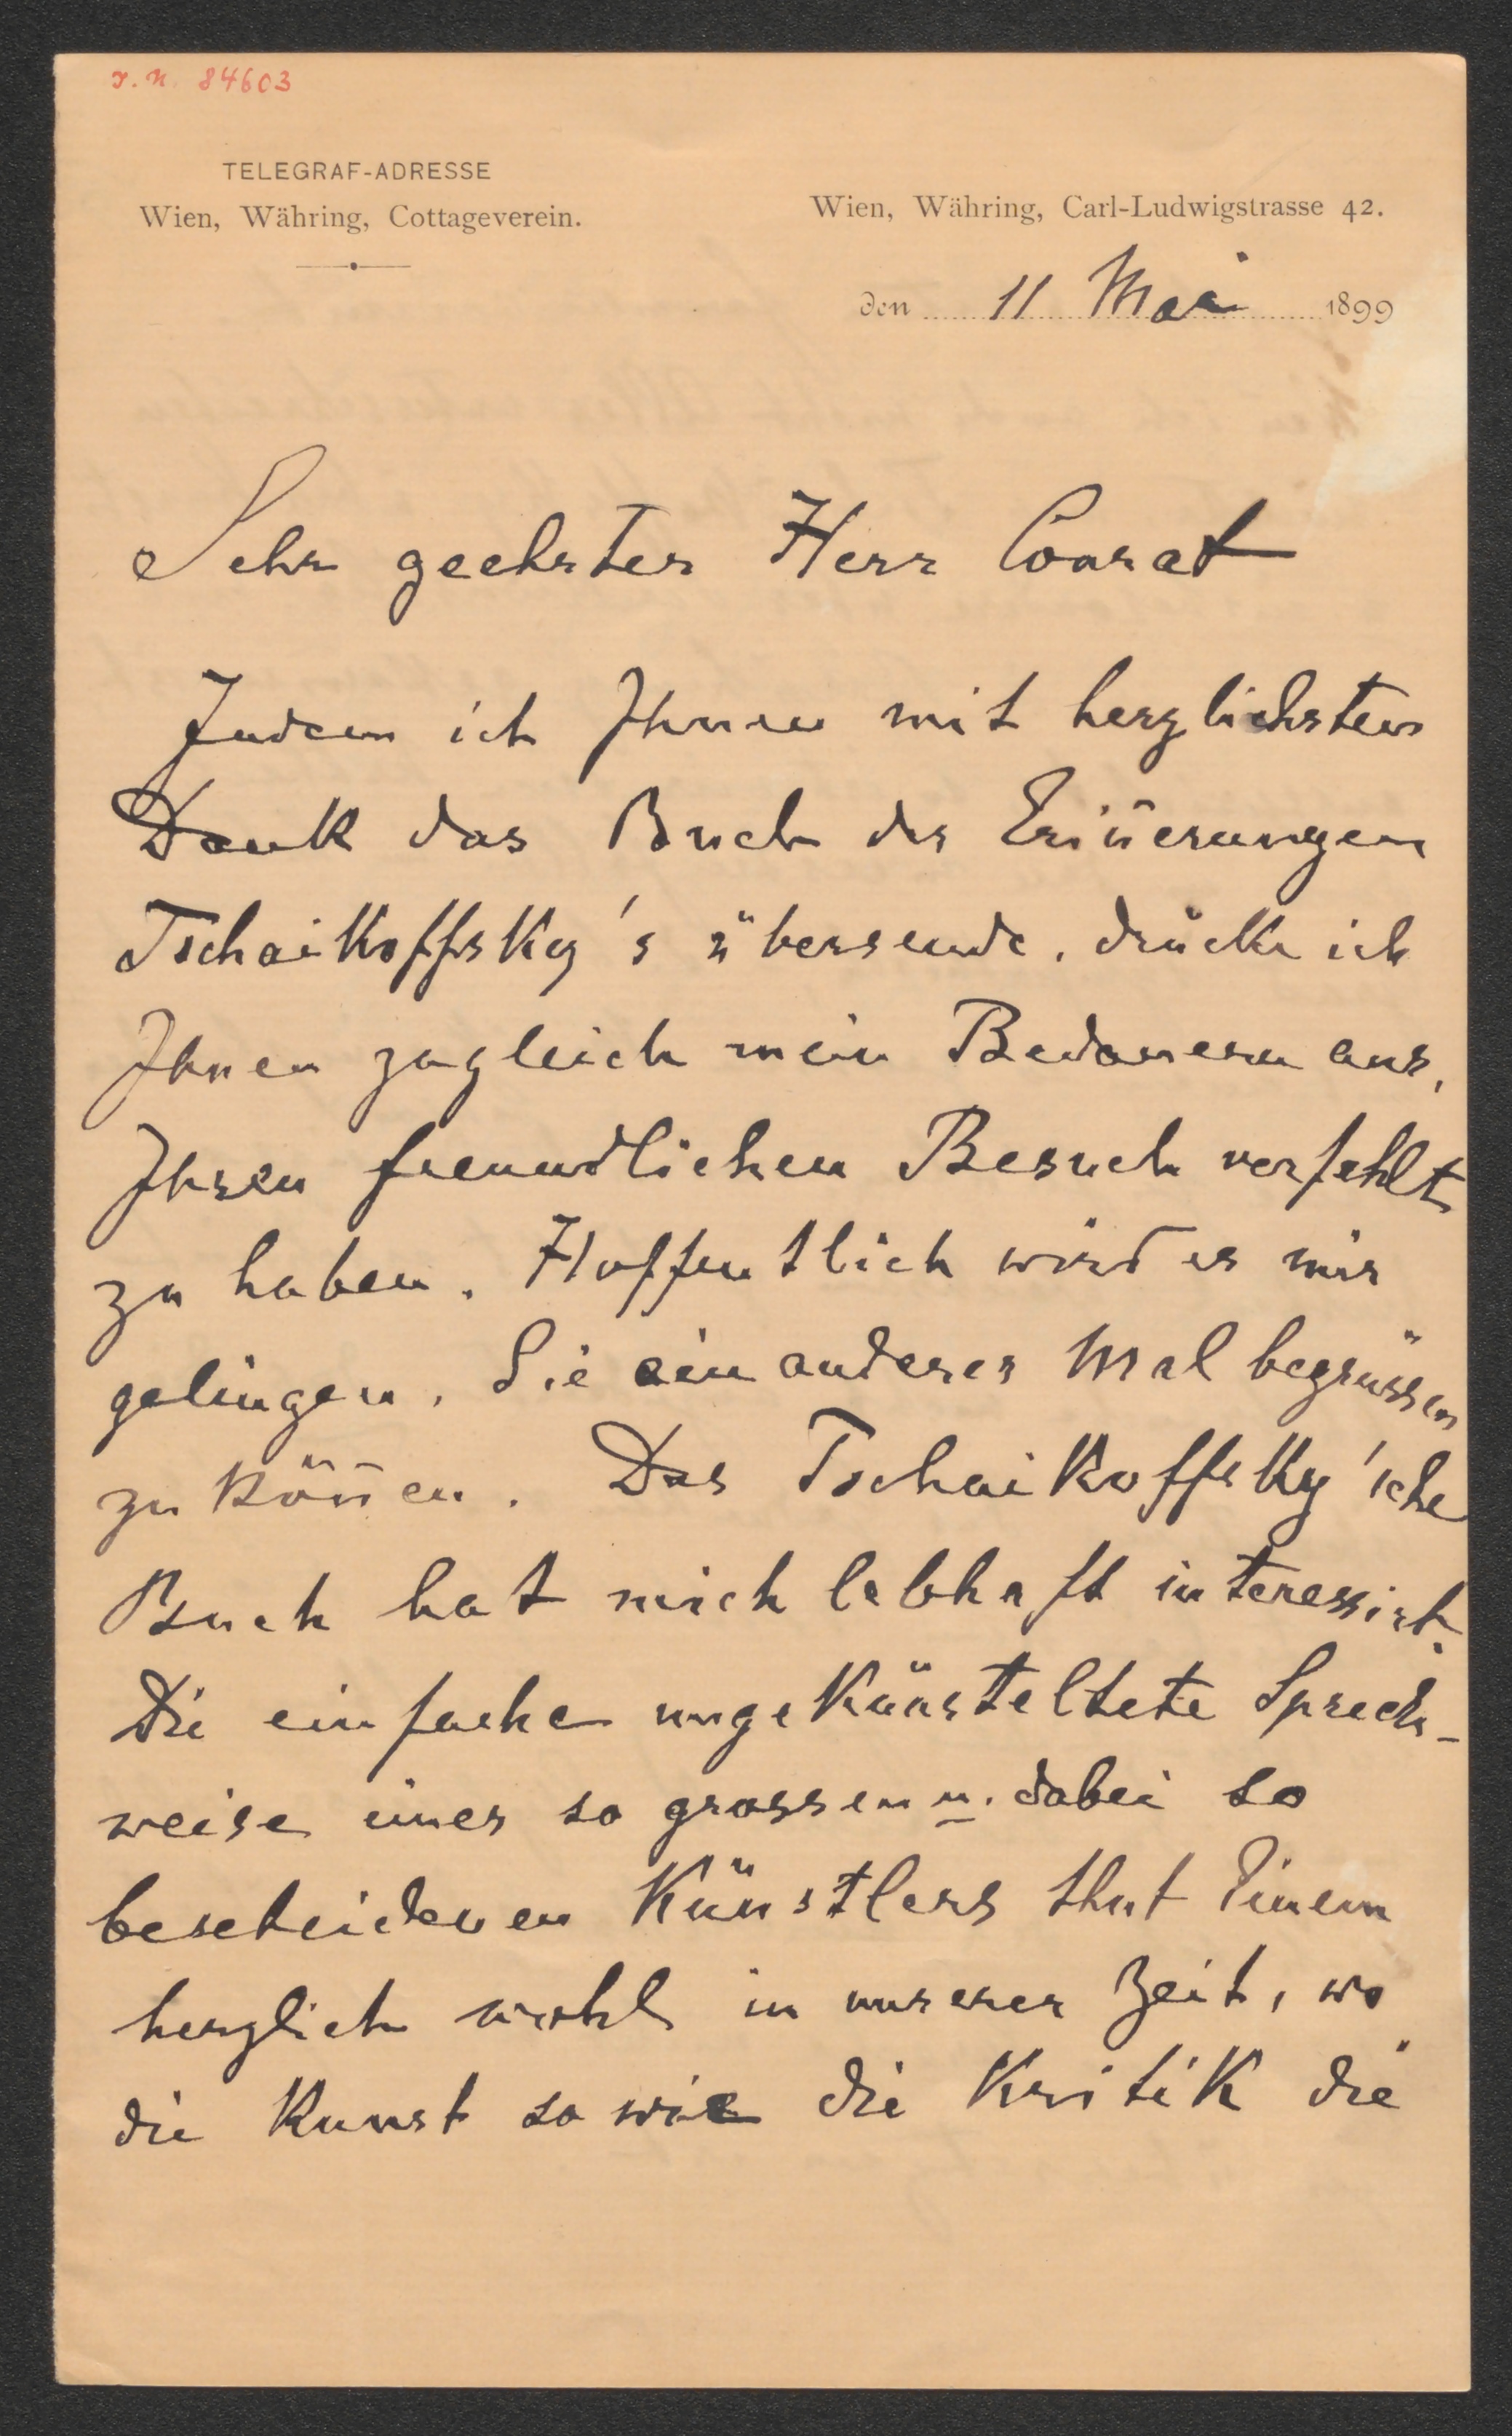 r. N. 84603
TELEGRAF-ADRESSE
Wien, Währing, Cottageverein.
Wien, Währing, Carl-Ludwigstrasse 42.
den 11 Mai 1899
Sehr geehrter Herr Conrat
Indem ich Ihnen mit herzlichstem
Dank das Buch der Erin̄erungen
Tschaikoffsky's übersende, drücke ich
Ihnen zugleich mein Bedauern aus,
Ihren freundlichen Besuch verfehlt
zu haben. Hoffentlich wird es mir
gelingen, Sie ein anderes Mal begrüssen
zu kön̄en. Das Tschaikoffsky'sche
Buch hat mich lebhaft interessirt.
Die einfache ungekünsteltete Sprech-
weise eines so grossen u. dabei so
bescheidenen Künstlers thut Einem
herzlich wohl in unserer Zeit, wo
die Kunst so wie die Kritik die